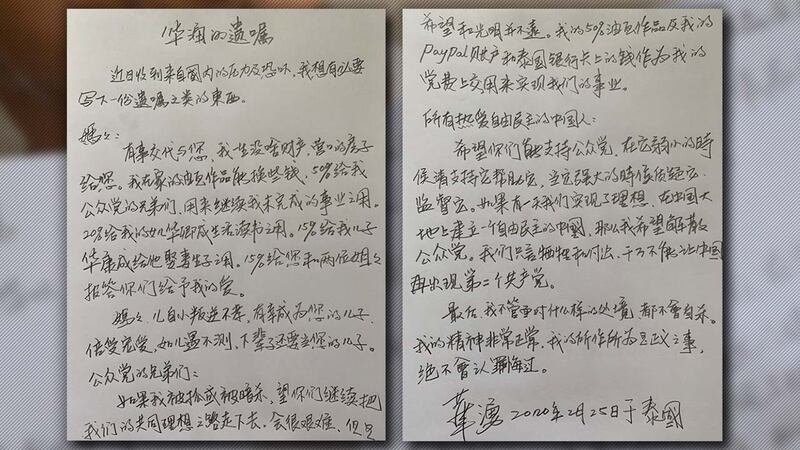 华涌的遺嘱
近日收到来自國内的压力及恐吓,我想有必要
写下一份遺嘱之类的東西。
媽々:
有事交代与您,我一生没啥财产,营口的房子
给您。我在家的油画作品能换些钱,50%给我
公众党的兄弟们,用来继续我未完成的事业之用。
20%给我的女儿华即成生活读书之用。15%给我儿子
华康成给他娶妻生子之用。15%给您和两位姐々
报答你们给予我的爱。
媽々,儿自小叛逆不孝,有幸成为您的儿子,
倍受宠爱,如儿遇不测,下辈子还要当您的儿子。
公众党的兄弟们:
如果我被抓或被暗杀,望你们继续把
我们的共同理想之路走下去,会很艰难,但是
希望和光明并不遠。我的50%油画作品及我的
PayPal账户和泰國银行卡上的钱作为我的
党费上交用来实现我们的事业。
所有热爱自由民主的中国人:
希望你们能支持公众党,在它弱小的時
候请支持它帮助它,当它强大的時候质疑它
监督它。如果有一天我们实现了理想,在中国大
地上建立一个自由民主的中國,那么我希望解散
公众党。我们只要牺牲和付出,千万不能让中國
再出现第二个共产党。
最后,我不管面对什么样的处境,都不會自杀。
我的精神非常正常,我的所作所为是正义之事,
绝不會认罪悔过。
華湧 2020年2月25日于泰國